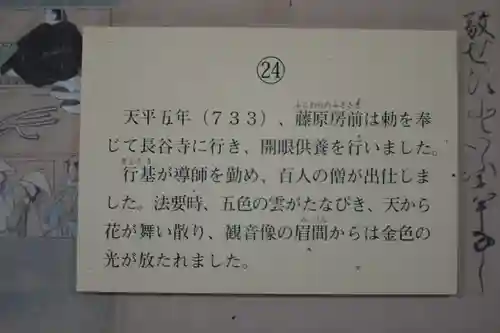 ㉔
天平五年（７３３）、藤原房前は勅を奉
じて長谷寺に行き、開眼供養を行いました。
行基が導師を勤め、百人の僧が出仕しま
した。法要時、五色の雲がたなびき、天から
花が舞い散り、観音像の眉間からは金色の
光が放たれました。